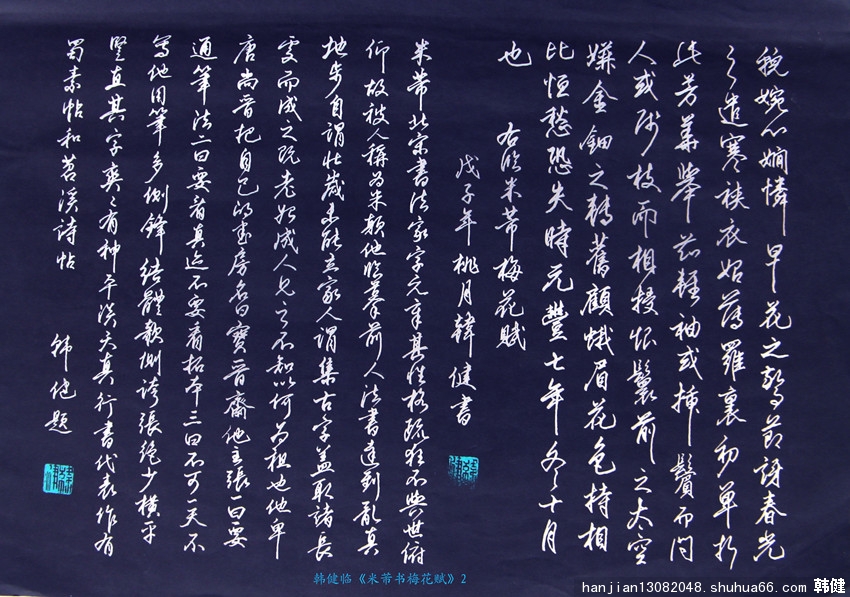 貌婉心嫻憐早花之驚節訝春光
之遣寒袂衣始薄羅裏初單折
此芳華舉茲輕袖或插鬢而問
人或殘枝而相授恨鬟前之太空
嫌金鈿之轉舊顧蛾眉花色持相
比恒愁恐失時元豐七年冬十月
也
右臨米芾梅花賦
戊子年桃月韓健書
米芾北宋書法家字元章其性格疏狂不與世俯
仰故被人稱為米顛他臨摹前人法書達到亂真
地步自謂壯歲未能立家人謂集古字蓋取諸長
處而成之既老始成人見之不知以何為祖也他卑
唐尚晋把自己的書房名曰寶晋齋他主張一曰要
通筆法二曰要看真迹不要看拓本三曰不可一天不
寫他用筆多側鋒結體欹側誇張絕少橫平
豎直其字奕奕有神平淡天真行書代表作有
蜀素帖和苕溪詩帖
韩健題
韩健临《米芾书梅花赋》2
hanjian13082048.shuhua66.com 韩健